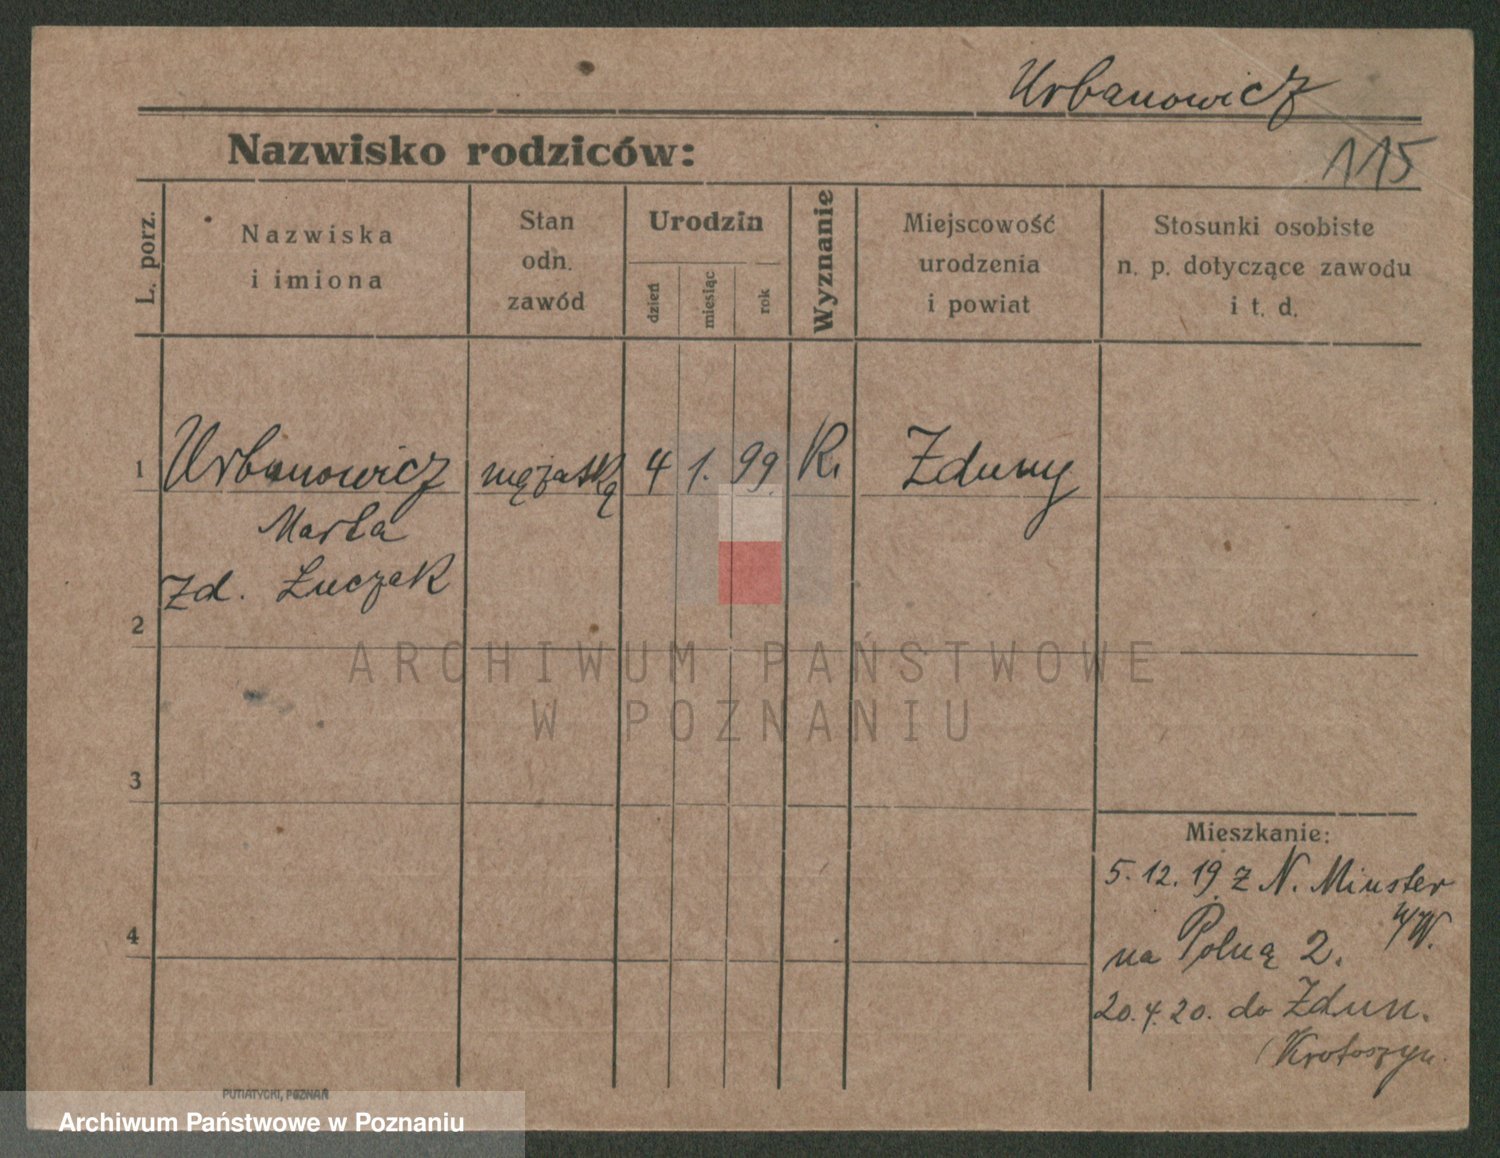 Urbanowicz
115
Nazwisko rodziców:
L. porz.
Nazwiska
i imiona
Stan
odn.
zawód
Urodzin
dzień
miesiąc
rok
Wyznanie
Miejscowość
urodzenia
i powiat
Stosunki osobiste
n. p. dotyczące zawodu
i t. d.
1 Urbanowicz mężatką 4 1. 99. K. Zduny
Marta
zd. Łuczak
2
3
4
Mieszkanie:
5.12.19 z N. Münster
i/W.
na Polną 2.
20.4.20. do Zdun.
(Krotoszyn
ARCHIWUM PAŃSTWOWE
W POZNANIU
PUTIATYCKI, POZNAŃ
Archiwum Państwowe w Poznaniu